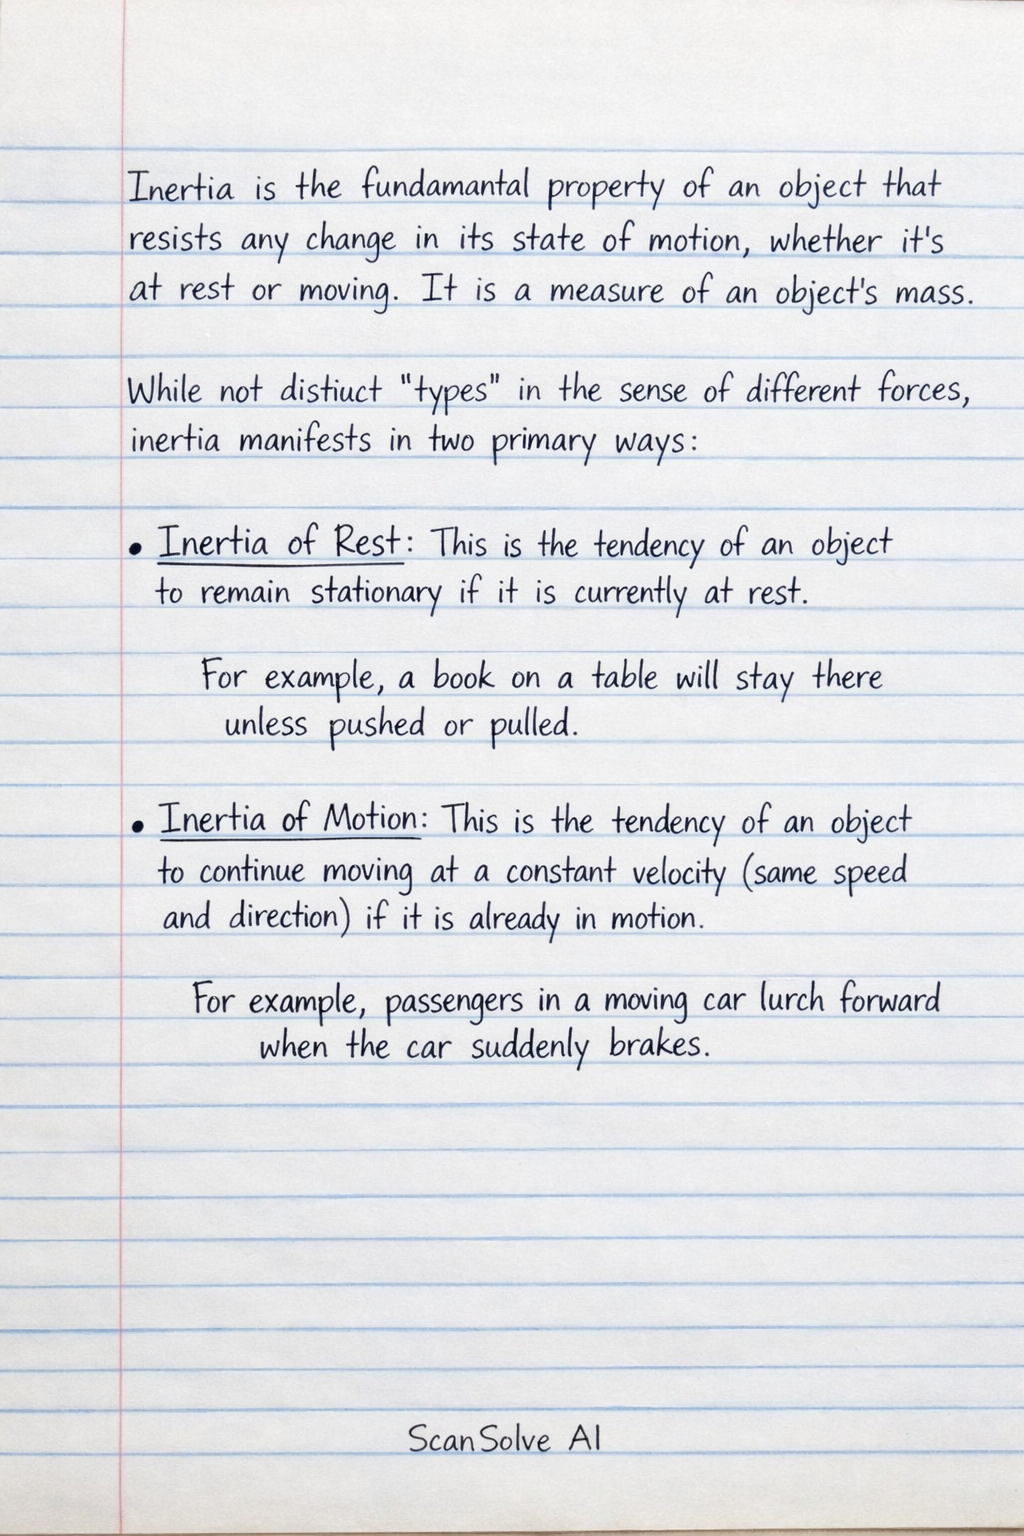 Inertia is the fundamantal property of an object that
resists any change in its state of motion, whether it's
at rest or moving. It is a measure of an object's mass.
While not distiuct "types" in the sense of different forces,
inertia manifests in two primary ways:
• Inertia of Rest: This is the tendency of an object
to remain stationary if it is currently at rest.
For example, a book on a table will stay there
unless pushed or pulled.
• Inertia of Motion: This is the tendency of an object
to continue moving at a constant velocity (same speed
and direction) if it is already in motion.
For example, passengers in a moving car lurch forward
when the car suddenly brakes.
ScanSolve AI